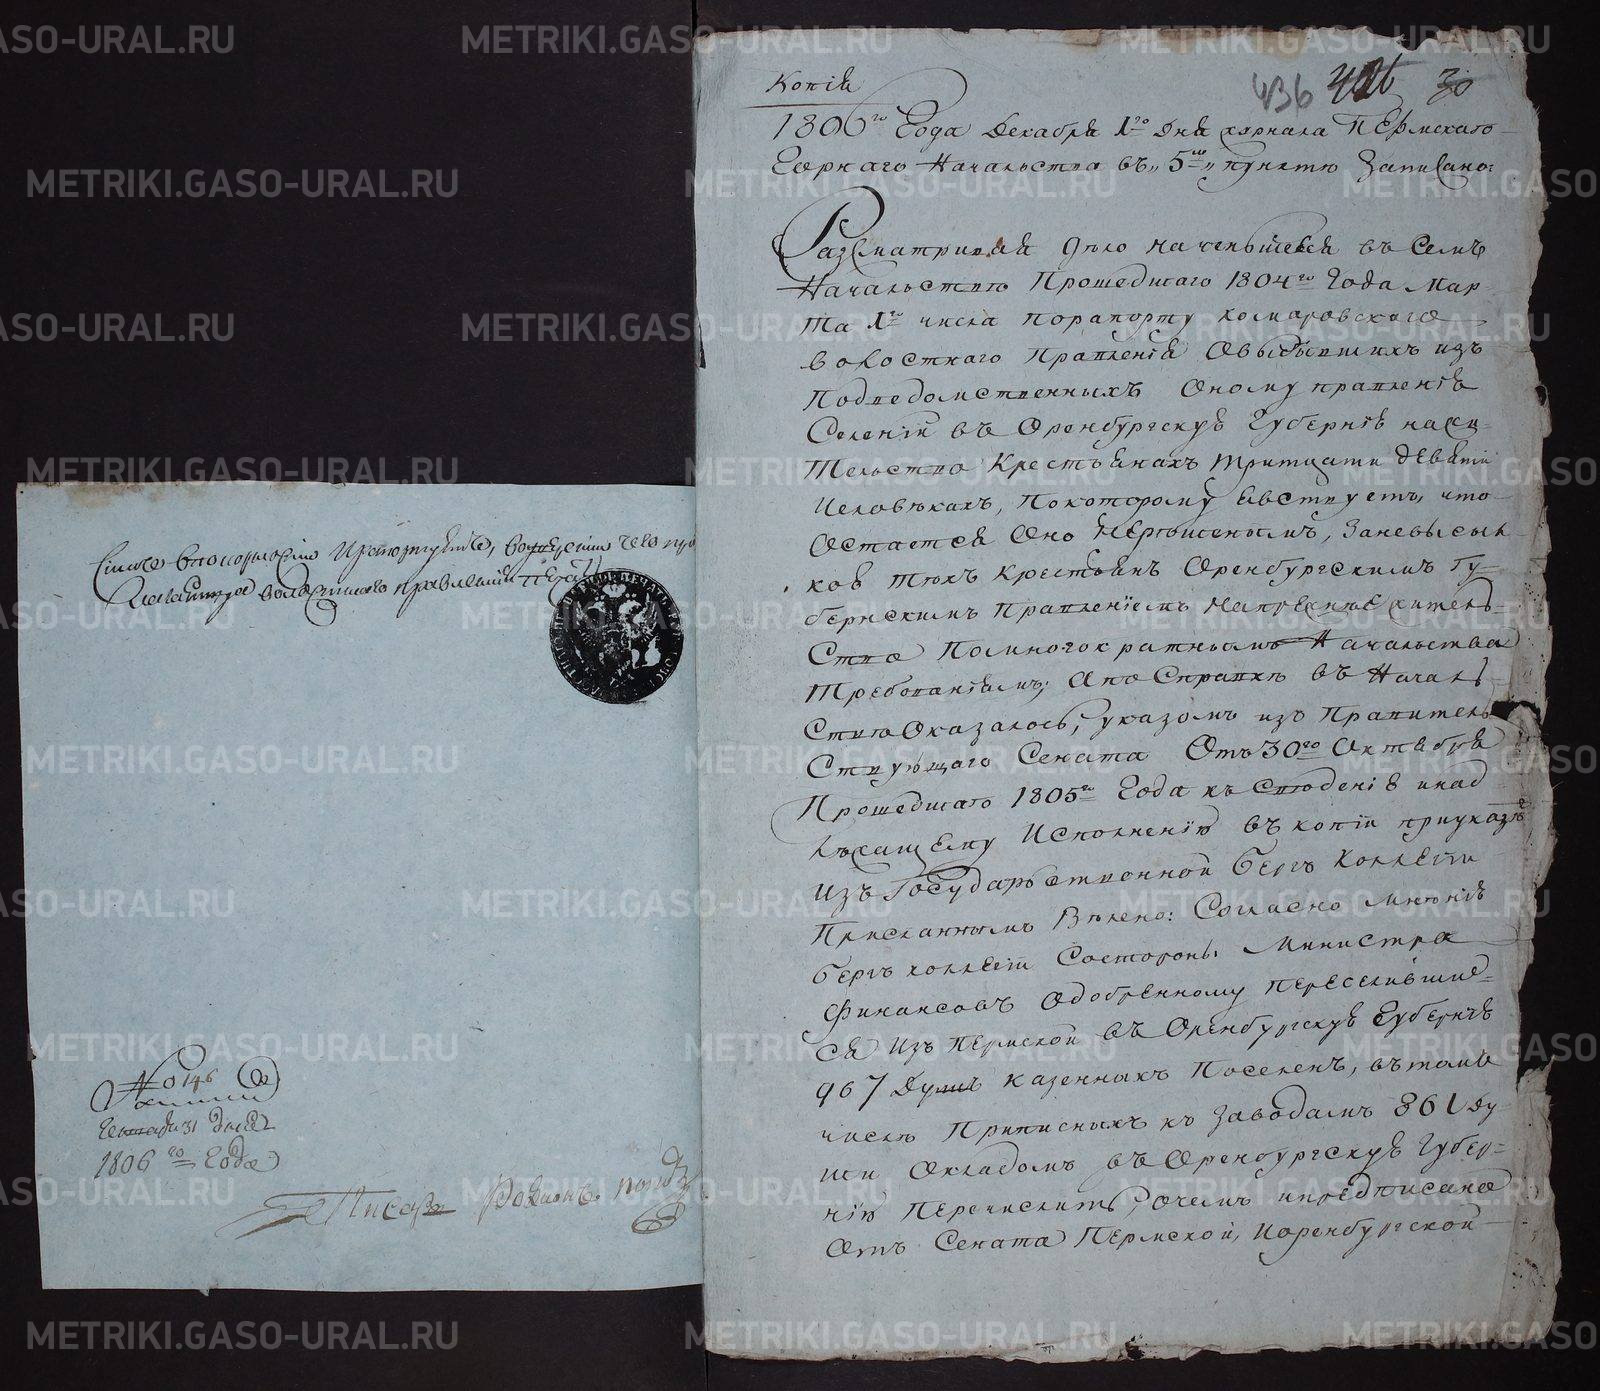 Копїя
436 426 30
1806го Года Декабря 1го дня журнала Пермскаго
Горнаго Начальства въ „5м„ пунктѣ Записано:
Разсматривая дѣло начевшееся въ Семъ
Начальствѣ Прошедшаго 1804го Года Мар
та 1го числа порапорту комаровскаго
волостнаго Правленїя Овыбывшихъ изъ
Подведомственныхъ Оному правленїю
Селенїй въ Оренбургскую Губернїю нажи-
тельство Крестьянахъ тритцати девяти
человѣкахъ, Покоторому явствуетъ, что
Остается Оно Нерѣшенымъ, Заневысыл
кою тѣхъ крестьянъ Оренбургскимъ Гу-
бернскимъ Правленїемъ Напрежнее житель-
Ство Помногократнымъ Начальства
Требованїямъ; Апо Справкѣ въ Началь-
Ствѣ Оказалось, указомъ изъ Правитель
Ствующаго Сената Отъ 30го Октября
Прошедшаго 1805го Года къ Сведенїю инад
лѣжащему Исполненїю въ копїи приуказѣ
Изъ Государственной бергъ Коллегїи
Присланнымъ Велено: Согласно мнѣнїю
бергъ коллегїи Состороны Министра
Финансовъ Одобренному переселивших-
ся Изъ Пермской въ Оренбургскую Губернїю
967 Душъ казенныхъ Поселенъ, вътомъ
числѣ Приписныхъ къ Заводамъ 861 Ду-
ши Окладомъ въ Оренбургскую Губер-
нїю Перечислить, очемъ ипредписано
Отъ Сената Пермской, Иоренбургской
№ 146
Генваря 31 дня
1806го Года
Писарь Родионъ
METRIKI.GASO-URAL.RU